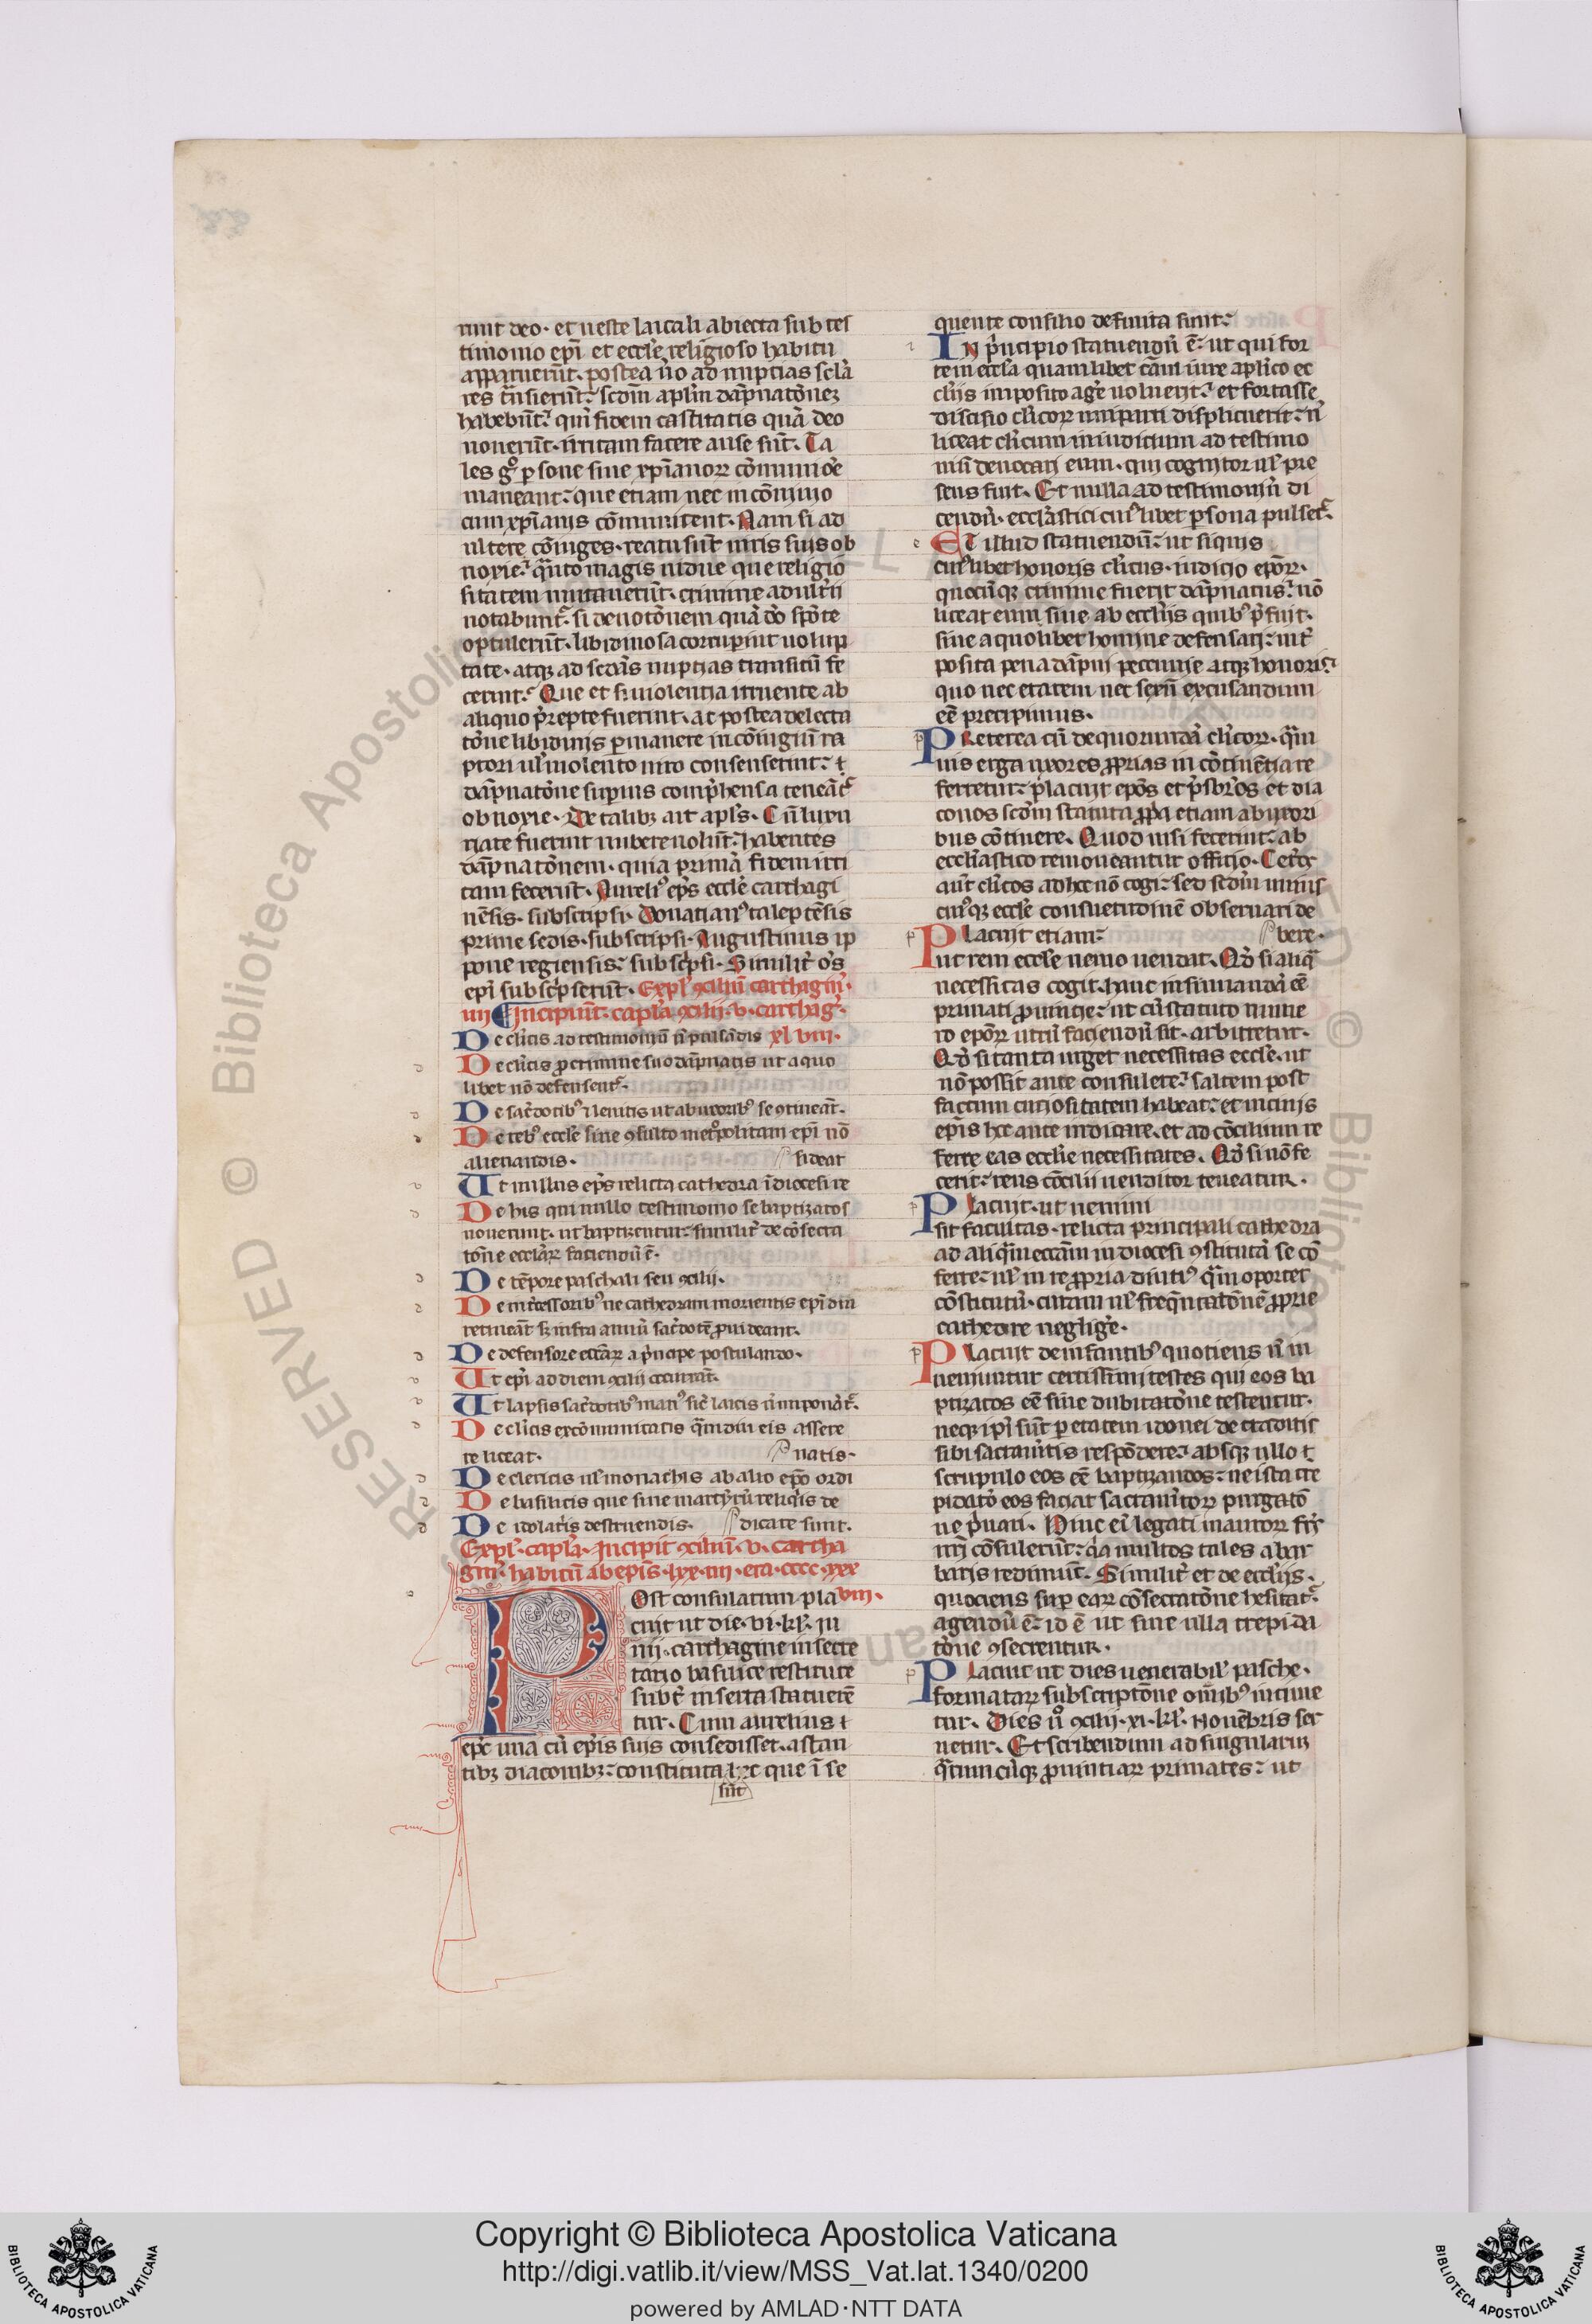 runt deo. et ueste laicali abiecta sub tes
timonio ep̄i et eccl'e religioso habitu
apparuerūt. postea ũo ad nuptias sc̄la
res tr̄nsierūt: scd̄m apl̄m dāpnatōnez
habebūt: qm̄ fidem castitatis quā deo
nouerūt. irritam facere ause sūt. Ta
les gͦ ꝑsone sine xp̄ianorꝝ cōmunioē
maneant: que etiam nec in cōuiuio
cum xp̄ianis cōmunicent. Nam si ad
ultere cōiuges. reatu sūt uiris suis ob
noxie: qͣnto magis uidue que religio
sitatem mutauerūt. crimine adult̓ii
notabuntᷣ. si deuotōnem quā dō spōte
optulerūt. libidinosa corruperint uolup
tate. atqꝫ ad sec̄das nuptias transitū fe
cerint: Que et si uiolentia irruente ab
aliquo p̓repte fuerint. ac postea delecta
tōne libidinis ꝑmanere in cōiugiū ra
ptori uł uiolento uiro consenserint: t
dāpnatōne superius comp̓hensa teneātᷣ
obnoxie. De talibꝫ ait apl̄s. Cū luxu
riate fuerint nubere uolūt: habentes
dāpnatōnem. quia primā fidem irri
tam fecerūt. Aureliꝰ ep̄s eccl'e carthagi
nēsis. subscripsi. Donatianꝰ taleptēsis
prime sedis. subscripsi. Augustinus ip
pone regiensis: subsc̓psi. Similit̓ om̄s
ep̄i subsc̓pserūt. Expl̓ ꝯciliū carthagin̄.
iiij Incipiūt. capl̓a ꝯcilij. v. carthag̓.
De cl̓icis ad testimoniū n̄ pulsādis xl viii.
De cl̓icis ꝓ crimine suo dāpnatis ut a quo
libet nō defensentᷣ.
De sac̓dotibꝰ ⁊ leuitis ut ab uxoribꝰ se ꝯtineāt.
De rebꝰ eccl'e sine ꝯsulto metͦpolitani ep̄i nō
alienandis. sideat
Ut nullus ep̄s relicta cathedra ī diocesi re
De his qui nullo testimonio se baptizatos
nouerunt. ut baptizentur: similit̓ de cōsecra
tōne eccl̓arꝝ faciendū ē.
De tēpore paschali seu ꝯcilij.
De int̓cessoribꝰ ne cathedram morientis ep̄i diu
retineāt sꝫ infra annū sac̓dotē ꝓuideant.
De defensore eccl̓arꝝ a p̓ncipe postulando.
Ut ep̄i ad diem ꝯcilij occurrāt.
Ut lapsis sac̓dotibꝰ manꝰ sic̓ laicis n̄ imponātᷣ.
De cl̓icis excōmunicatis qͣmdiu eis assere
re liceat. natis.
De clericis uł monachis ab alio ep̄o ordi
De basilicis que sine martyrū reliq̓is de
De idolatris destruendis. dicate sunt.
Expl̓. capl̓a. Incipit ꝯciliū. v. cartha
gin̄. habitū ab ep̄is. lxx. iii. era. cccc. xxx
Post consulatum pla viii.
cuit ut die. vi. kł. iu
nij. carthagine in secre
tario basilice restitute
subt̓ inserta statuerē
tur. Cum aurelius t
ep̄c una cū ep̄is suis consedisset. astan
tibꝫ diaconibꝫ: constituta hec que ī se
sūt
quente consilio definita sunt:
In p̓ncipio statuendū ē: ut qui for
tem eccl̓a quamlibet cām iure apl̓ico ec
cl̓iis imposito ag̓e uoluerit: et fortasse
discisio cl̓icorꝝ uni parti displicuerit: n̄
liceat cl̓icum in iudicium ad testimo
niū deuocari eum. qui cognitor uł pre
sens fuit. Et nulla ad testimoniū di
cendū. eccl̓astici cuiꝰlibet ꝑsona pulsetᷣ.
Et illud statuendū: ut siquis
cuiꝰlibet honoris cl̓icus. iudicio ep̄orꝝ.
quocūqꝫ crimine fuerit dāpnatus: nō
liceat eum siue ab eccl̓iis quibꝰ p̓fuit.
siue a quolibet homine defensari: int̓
posita pena dāpni pecunie atqꝫ honoris:
quo nec etatem nec sexū excusandum
eē precipimus.
Preterea cū de quorundā cl̓icorꝝ. qͣm
uis erga uxores ꝓprias in cōtinētia re
ferretur: placuit ep̄os et p̓sbr̓os et dia
conos scd̄m statuta ꝓpa etiam ab uxori
bus cōtinere. Quod nisi fecerint: ab
eccl̓iastico remoueantur officio. Cet̓os
aūt cl̓icos ad hec nō cogi: sed scd̄m uniuſ
cuiꝰqꝫ eccl'e consuetudinē obseruari de
Placuit etiam: bere.
ut rem eccl'e nemo uendat. Qd̓ si aliqͣ
necessitas cogit. hanc insinuandā eē
primati ꝓuincie: ut cū statuto nume
ro ep̄orꝝ utrū faciendū sit. arbitretur.
Qd̓ si tanta urget necessitas eccl'e. ut
nō possit ante consulere: saltem post
factum curiositatem habeat: et uicinis
ep̄is hec ante indicare. et ad cōcilium re
ferre eas eccl̓ie necessitates. Qd̓ si nō fe
cerit: reus cōcilii uenditor teneatur.
Placuit. ut nemini
sit facultas. relicta principali cathedra
ad aliqͣm eccl̓am in diocesi ꝯstitutā se cō
ferre: uł in re ꝓpria diutiꝰ qͣm oportet
cōstitutū. curam uł freq̄ntatōnē ꝓprie
cathedre neglig̓e.
Placuit de infantibꝰ quotiens n̄ in
ueniuntur certissimi testes qui eos ba
ptizatos eē sine dubitatōne testentur.
neqꝫ ip̄i sūt ꝑ etatem idonei de traditis
sibi sacram̄tis respōdere: absqꝫ ullo t
scrupulo eos eē baptizandos: ne ista tre
pidatō eos faciat sacram̄torꝝ purgatō
ne p̓uari. Hinc ei̓ legati mauror̄ fr̄s
nr̄i cōsulerūt: qͣ multos tales a bar
baris redimūt. Similit̓ et de eccl̓iis.
quociens suꝑ earꝝ cōsecratōne hesitatᷣ.
agendū ē: id ē ut sine ulla trepida
tōne ꝯsecrentur.
Placuit ut dies uenerabił pasche.
formatarꝝ subscriptōne om̄ibꝰ intime
tur. Dies ũͦ ꝯcilij. xi. kł. Nouēbris ser
uetur. Et scribendum ad singularū
qͣrumcūqꝫ ꝓuintiarꝝ primates: ut
Copyright © Biblioteca Apostolica Vaticana
http://digi.vatlib.it/view/MSS_Vat.lat.1340/0200
powered by AMLAD·NTT DATA